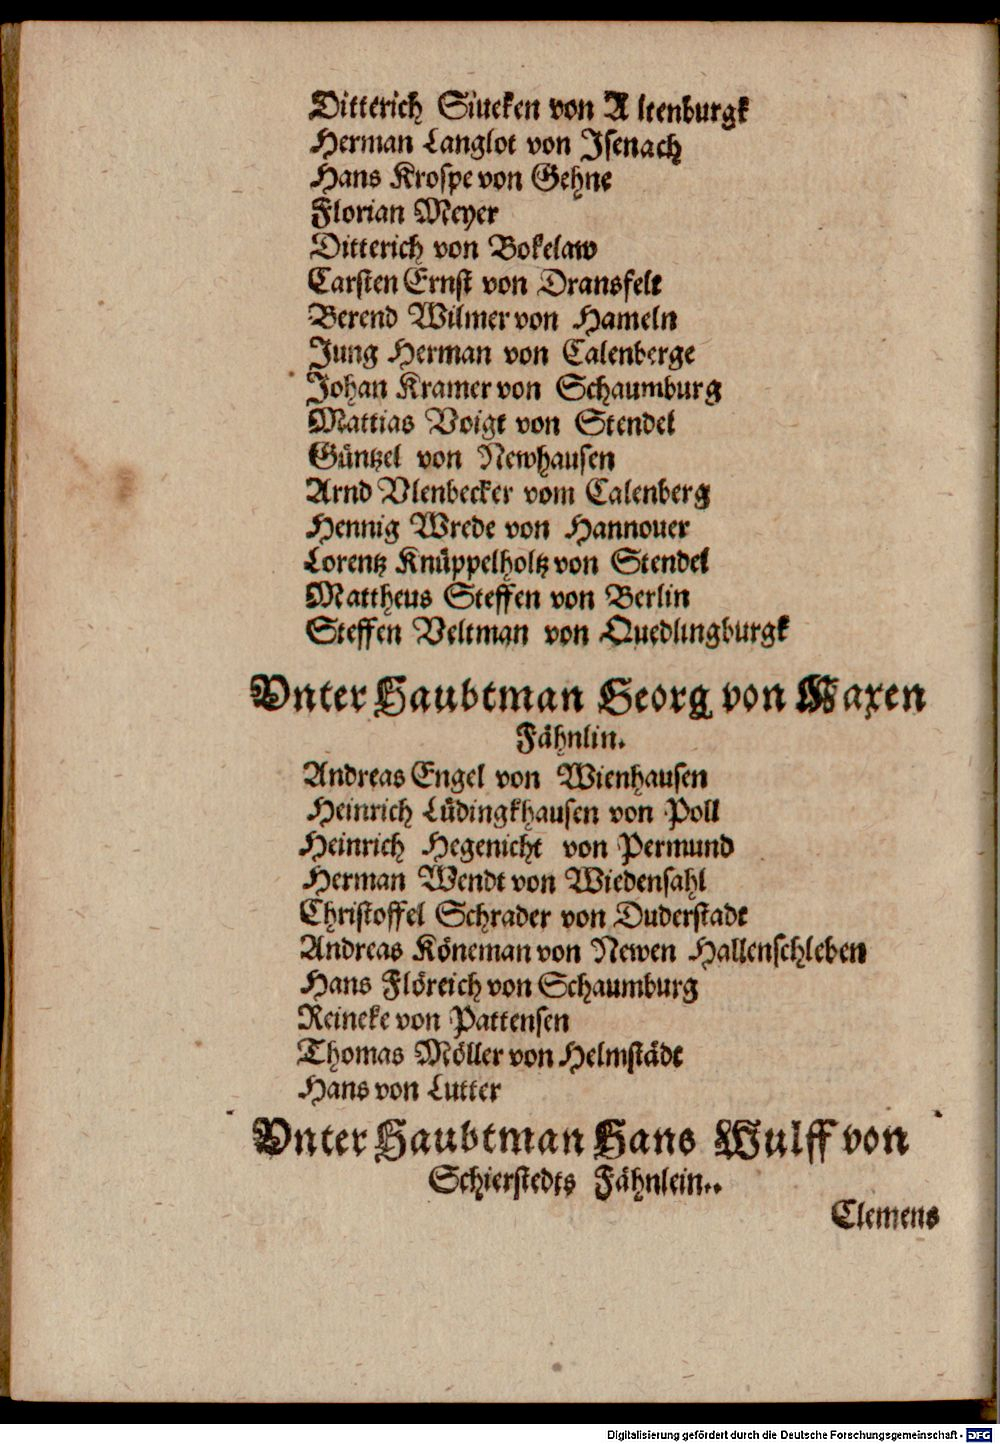 Ditterich Siueken von Altenburgk
Herman Langlot von Isenach
Hans Krospe von Gehne
Florian Meyer
Ditterich von Bokelaw
Carsten Ernst von Dransfelt
Berend Wilmer von Hameln
Jung Herman von Calenberge
Johan Kramer von Schaumburg
Mattias Voigt von Stendel
Güntzel von Newhausen
Arnd Vlenbecker vom Calenberg
Hennig Wrede von Hannouer
Lorentz Knüppelholtz von Stendel
Mattheus Steffen von Berlin
Steffen Veltman von Quedlingburgk
Vnter Haubtman Georg von Maxen
Fähnlin.
Andreas Engel von Wienhausen
Heinrich Lüdingkhausen von Poll
Heinrich Hegenicht von Permund
Herman Wendt von Wiedensahl
Christoffel Schrader von Duderstadt
Andreas Köneman von Newen Hallenschleben
Hans Flöreich von Schaumburg
Reineke von Pattensen
Thomas Möller von Helmstädt
Hans von Lutter
Vnter Haubtman Hans Wulff von
Schierstedts Fähnlein..
Clemens
Digitalisierung gefördert durch die Deutsche Forschungsgemeinschaft - DFG